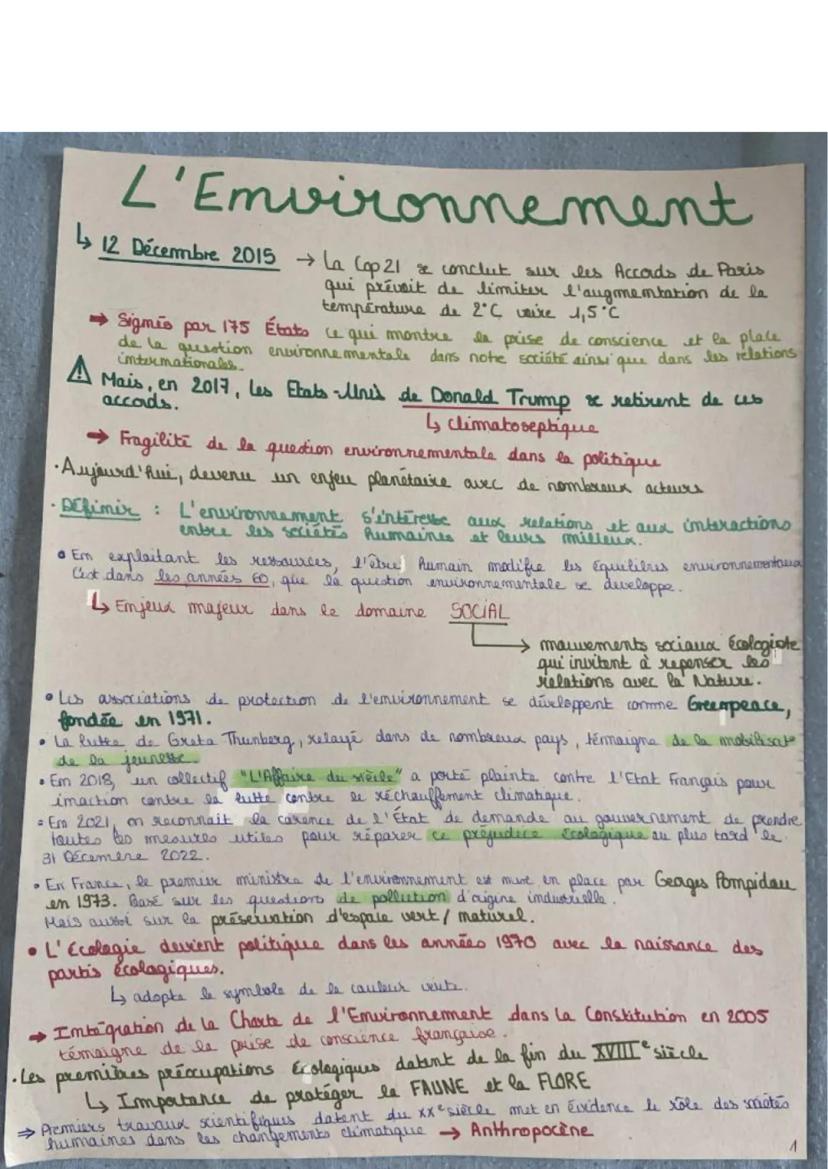 L'Environnement
↳ 12 Décembre 2015 → La Cop21 se conclut sur les Accords de Paris
qui prévoit de limiter l'augmentation de la
température de 2°C voire 1,5°C
→ Signés par 175 États ce qui montre la prise de conscience et la place
de la question environnementale dans notre société ainsi que dans les relations
internationales.
⚠ Mais, en 2017, les Etats-Unis de Donald Trump se retirent de ces
accords.
↳ climatoseptique
→ Fragilité de la question environnementale dans la politique
· Aujourd'hui, devenu un enjeu planétaire avec de nombreux acteurs
· Définir : L'environnement s'intéresse aux relations et aux interactions
entre les sociétés humaines et leurs milieux.
• En exploitant les ressources, l'être humain modifie les équilibres environnementaux
C'est dans les années 60, que la question environnementale se developpe.
↳ Enjeux majeur dans le domaine SOCIAL
→ mouvements sociaux écologiste
qui invitent à repenser les
relations avec la Nature.
• Les associations de protection de l'environnement se développent comme Greenpeace,
fondée en 1971.
• La lutte de Greta Thunberg, relayé dans de nombreux pays, témoigne de la mobilisat°
de la jeunesse.
• En 2018, un collectif "L'Affaire du siècle" a porté plainte contre l'Etat Français pour
inaction contre la lutte contre le réchauffement climatique.
• En 2021, on reconnait la carence de l'État de demande au gouvernement de prendre
toutes les mesures utiles pour réparer ce préjudice écologique au plus tard le
31 Décembre 2022.
• En France, le premier ministre de l'environnement est mise en place par Georges Pompidou
en 1973. Basé sur les questions de pollution d'origine industrielle.
Mais aussi sur la préservation d'espace vert / naturel.
• L'écologie devient politique dans les années 1970 avec la naissance des
partis écologiques.
↳ adopte le symbole de la couleur verte.
→ Intégration de la Charte de l'Environnement dans la Constitution en 2005
témoigne de la prise de conscience française.
· Les premières préoccupations écologiques datent de la fin du XVIIIe siècle
↳ Importance de protéger la FAUNE et la FLORE
⇒ Premiers travaux scientifiques datent du XXe siècle met en évidence le rôle des sociétés
humaines dans les changements climatique → Anthropocène
1